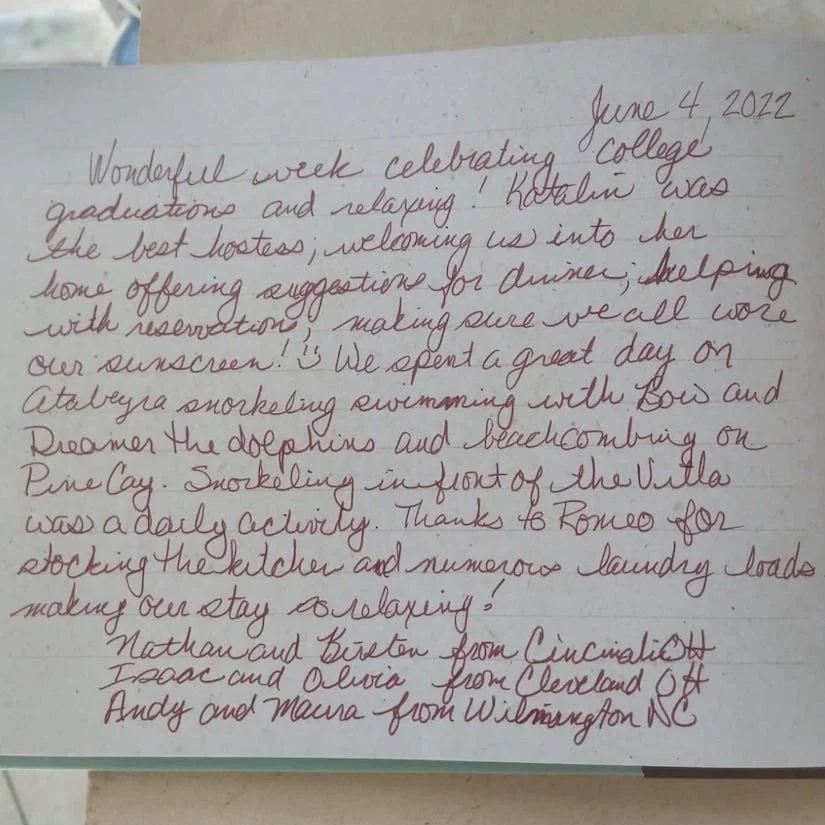 June 4, 2022
Wonderful week celebrating college
graduations and relaxing! Katalin was
the best hostess, welcoming us into her
home offering suggestions for dinner, helping
with reservations, making sure we all wore
our sunscreen! We spent a great day on
Atabeyra snorkeling swimming with Bow and
Dreamer the dolphins and beachcombing on
Pine Cay. Snorkeling in front of the Villa
was a daily activity. Thanks to Romeo for
stocking the kitchen and numerous laundry loads
making our stay so relaxing!
Nathan and Kirsten from Cincinati OH
Isaac and Olivia from Cleveland OH
Andy and Maura from Wilmington NC